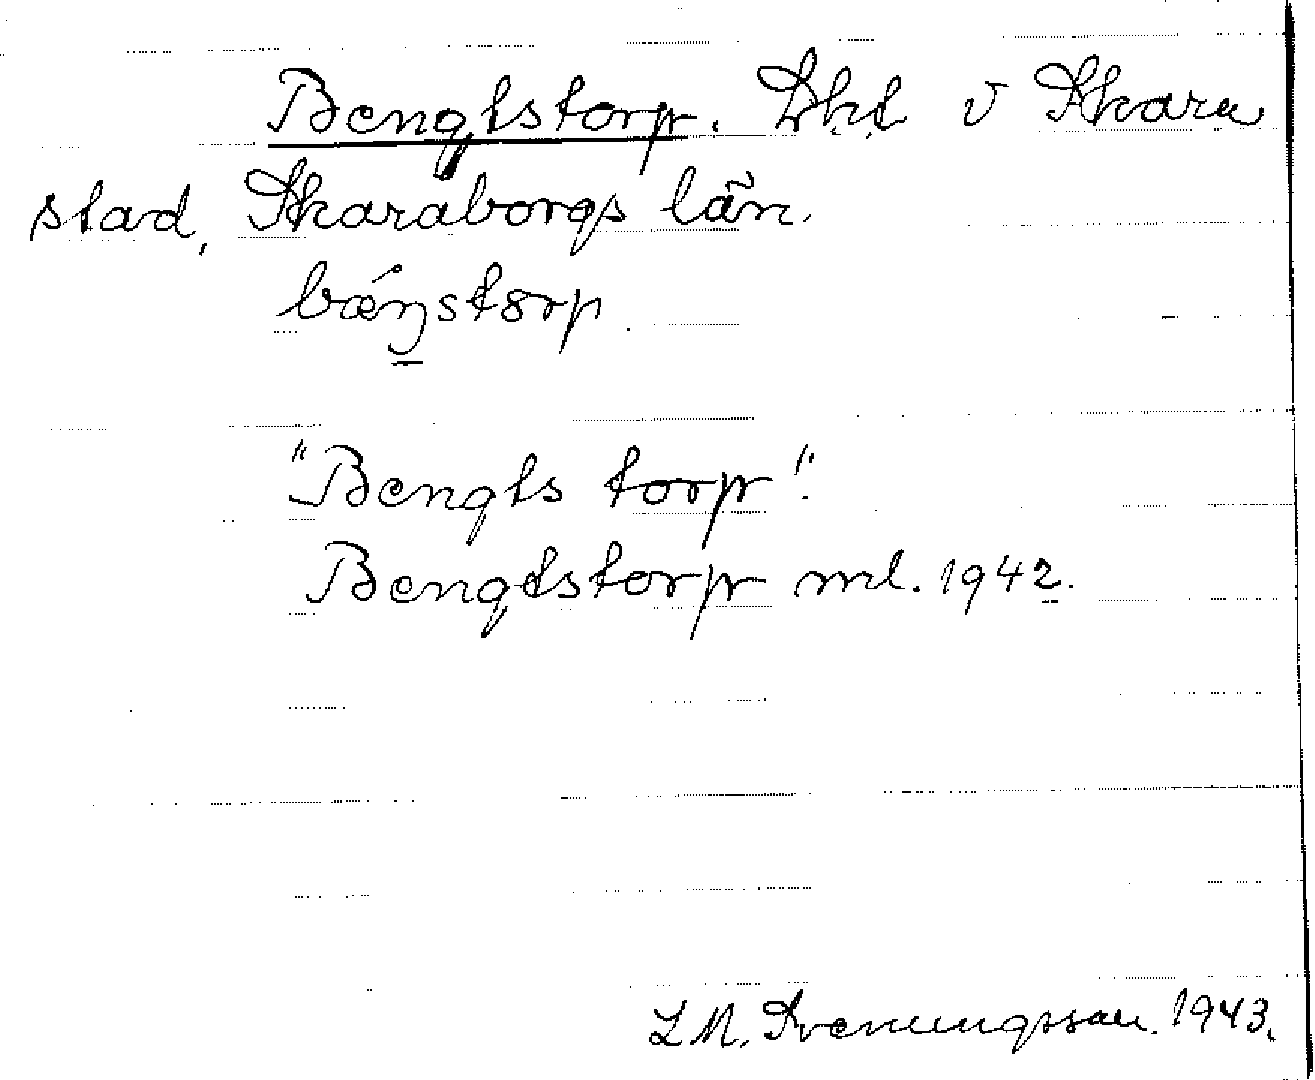 Bengtstorp. Lht v Skara
stad, Skaraborgs län.
bǽŋstorp.
"Bengts torp".
Bengtstorp ml. 1942.
L M. Svenungsson. 1943.